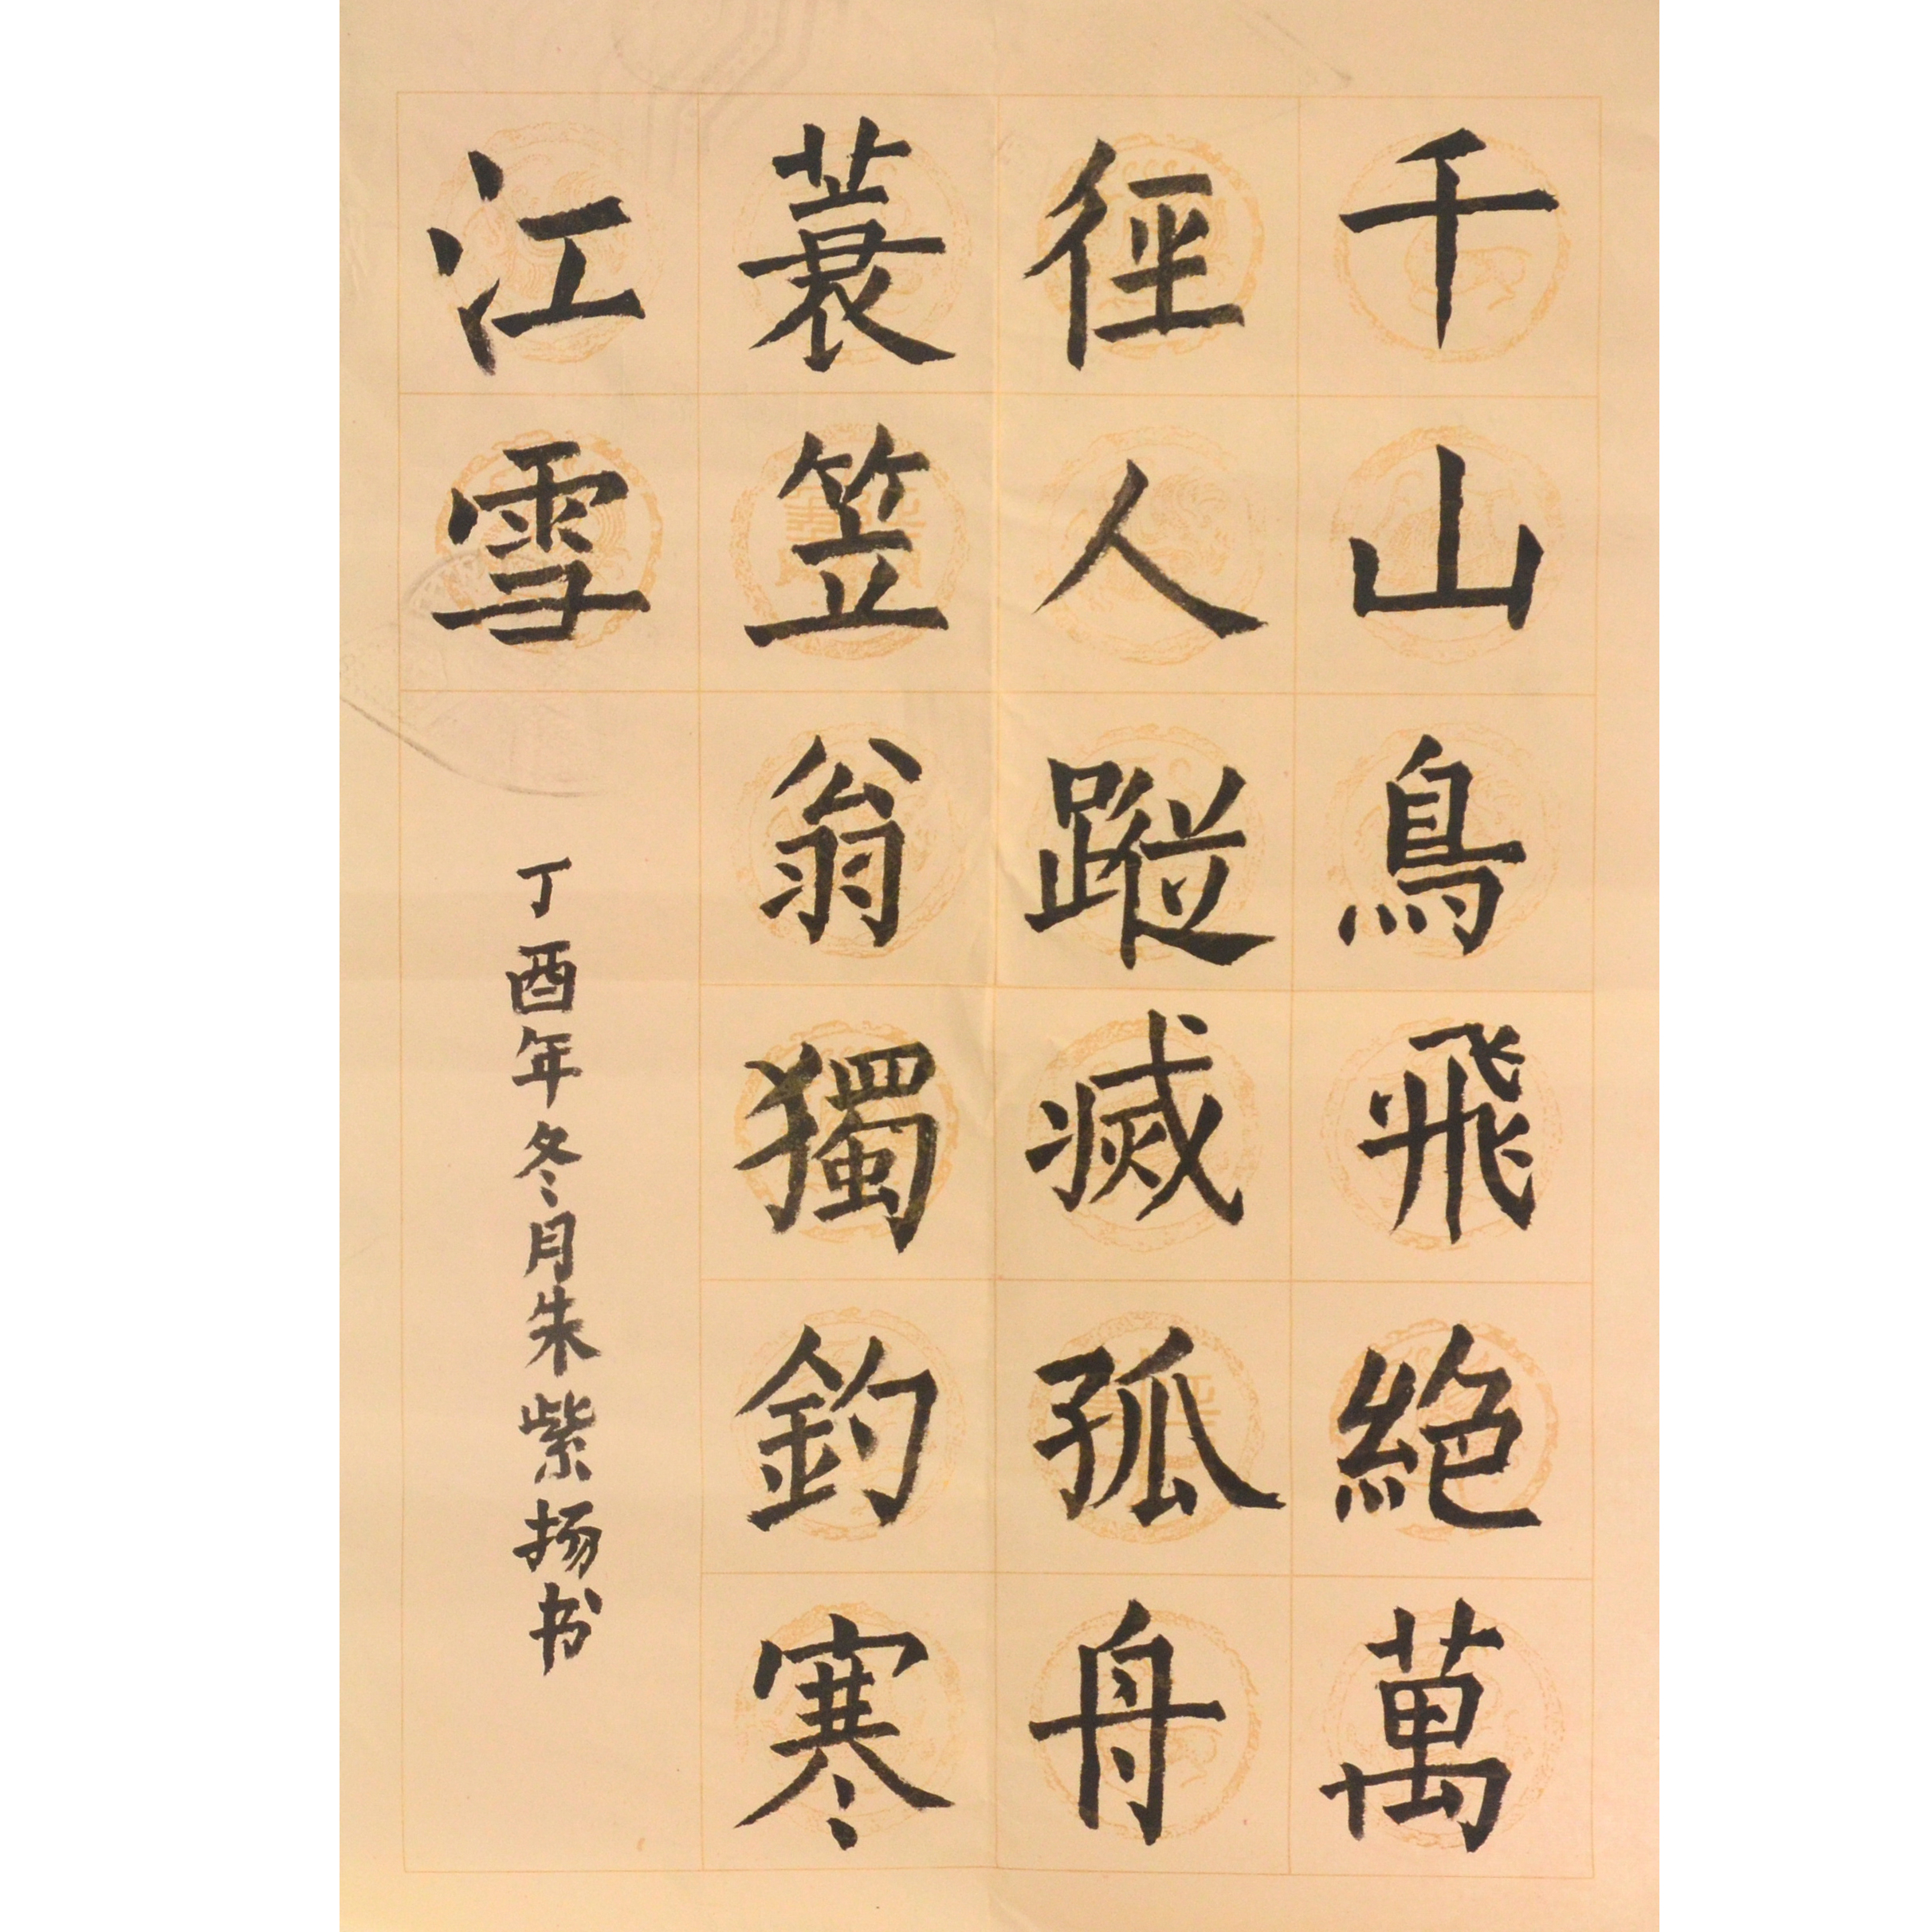 千山鳥飛絕萬
徑人蹤滅孤舟
蓑笠翁獨釣寒
江雪
丁酉年冬月朱紫扬书